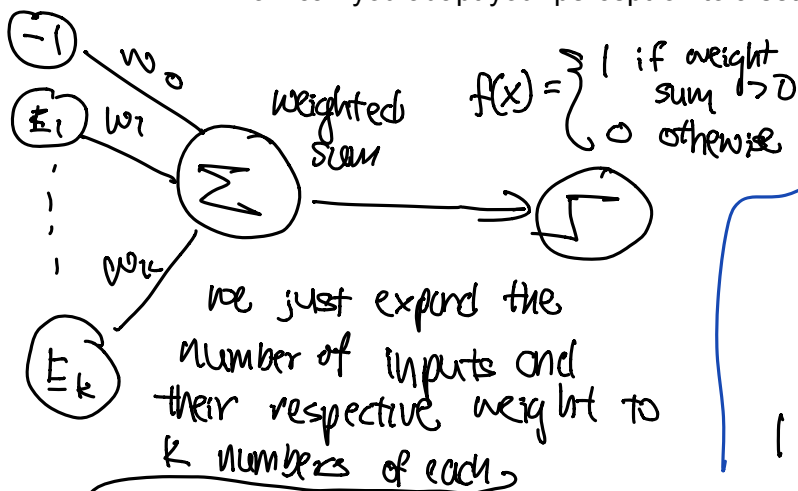 -1
w₀
E₁ w₁
weighted
sum
f(x) = { 1 if weight
sum >0
0 otherwise
Σ
wₖ
Eₖ
we just expand the
number of inputs and
their respective weight to
k numbers of each